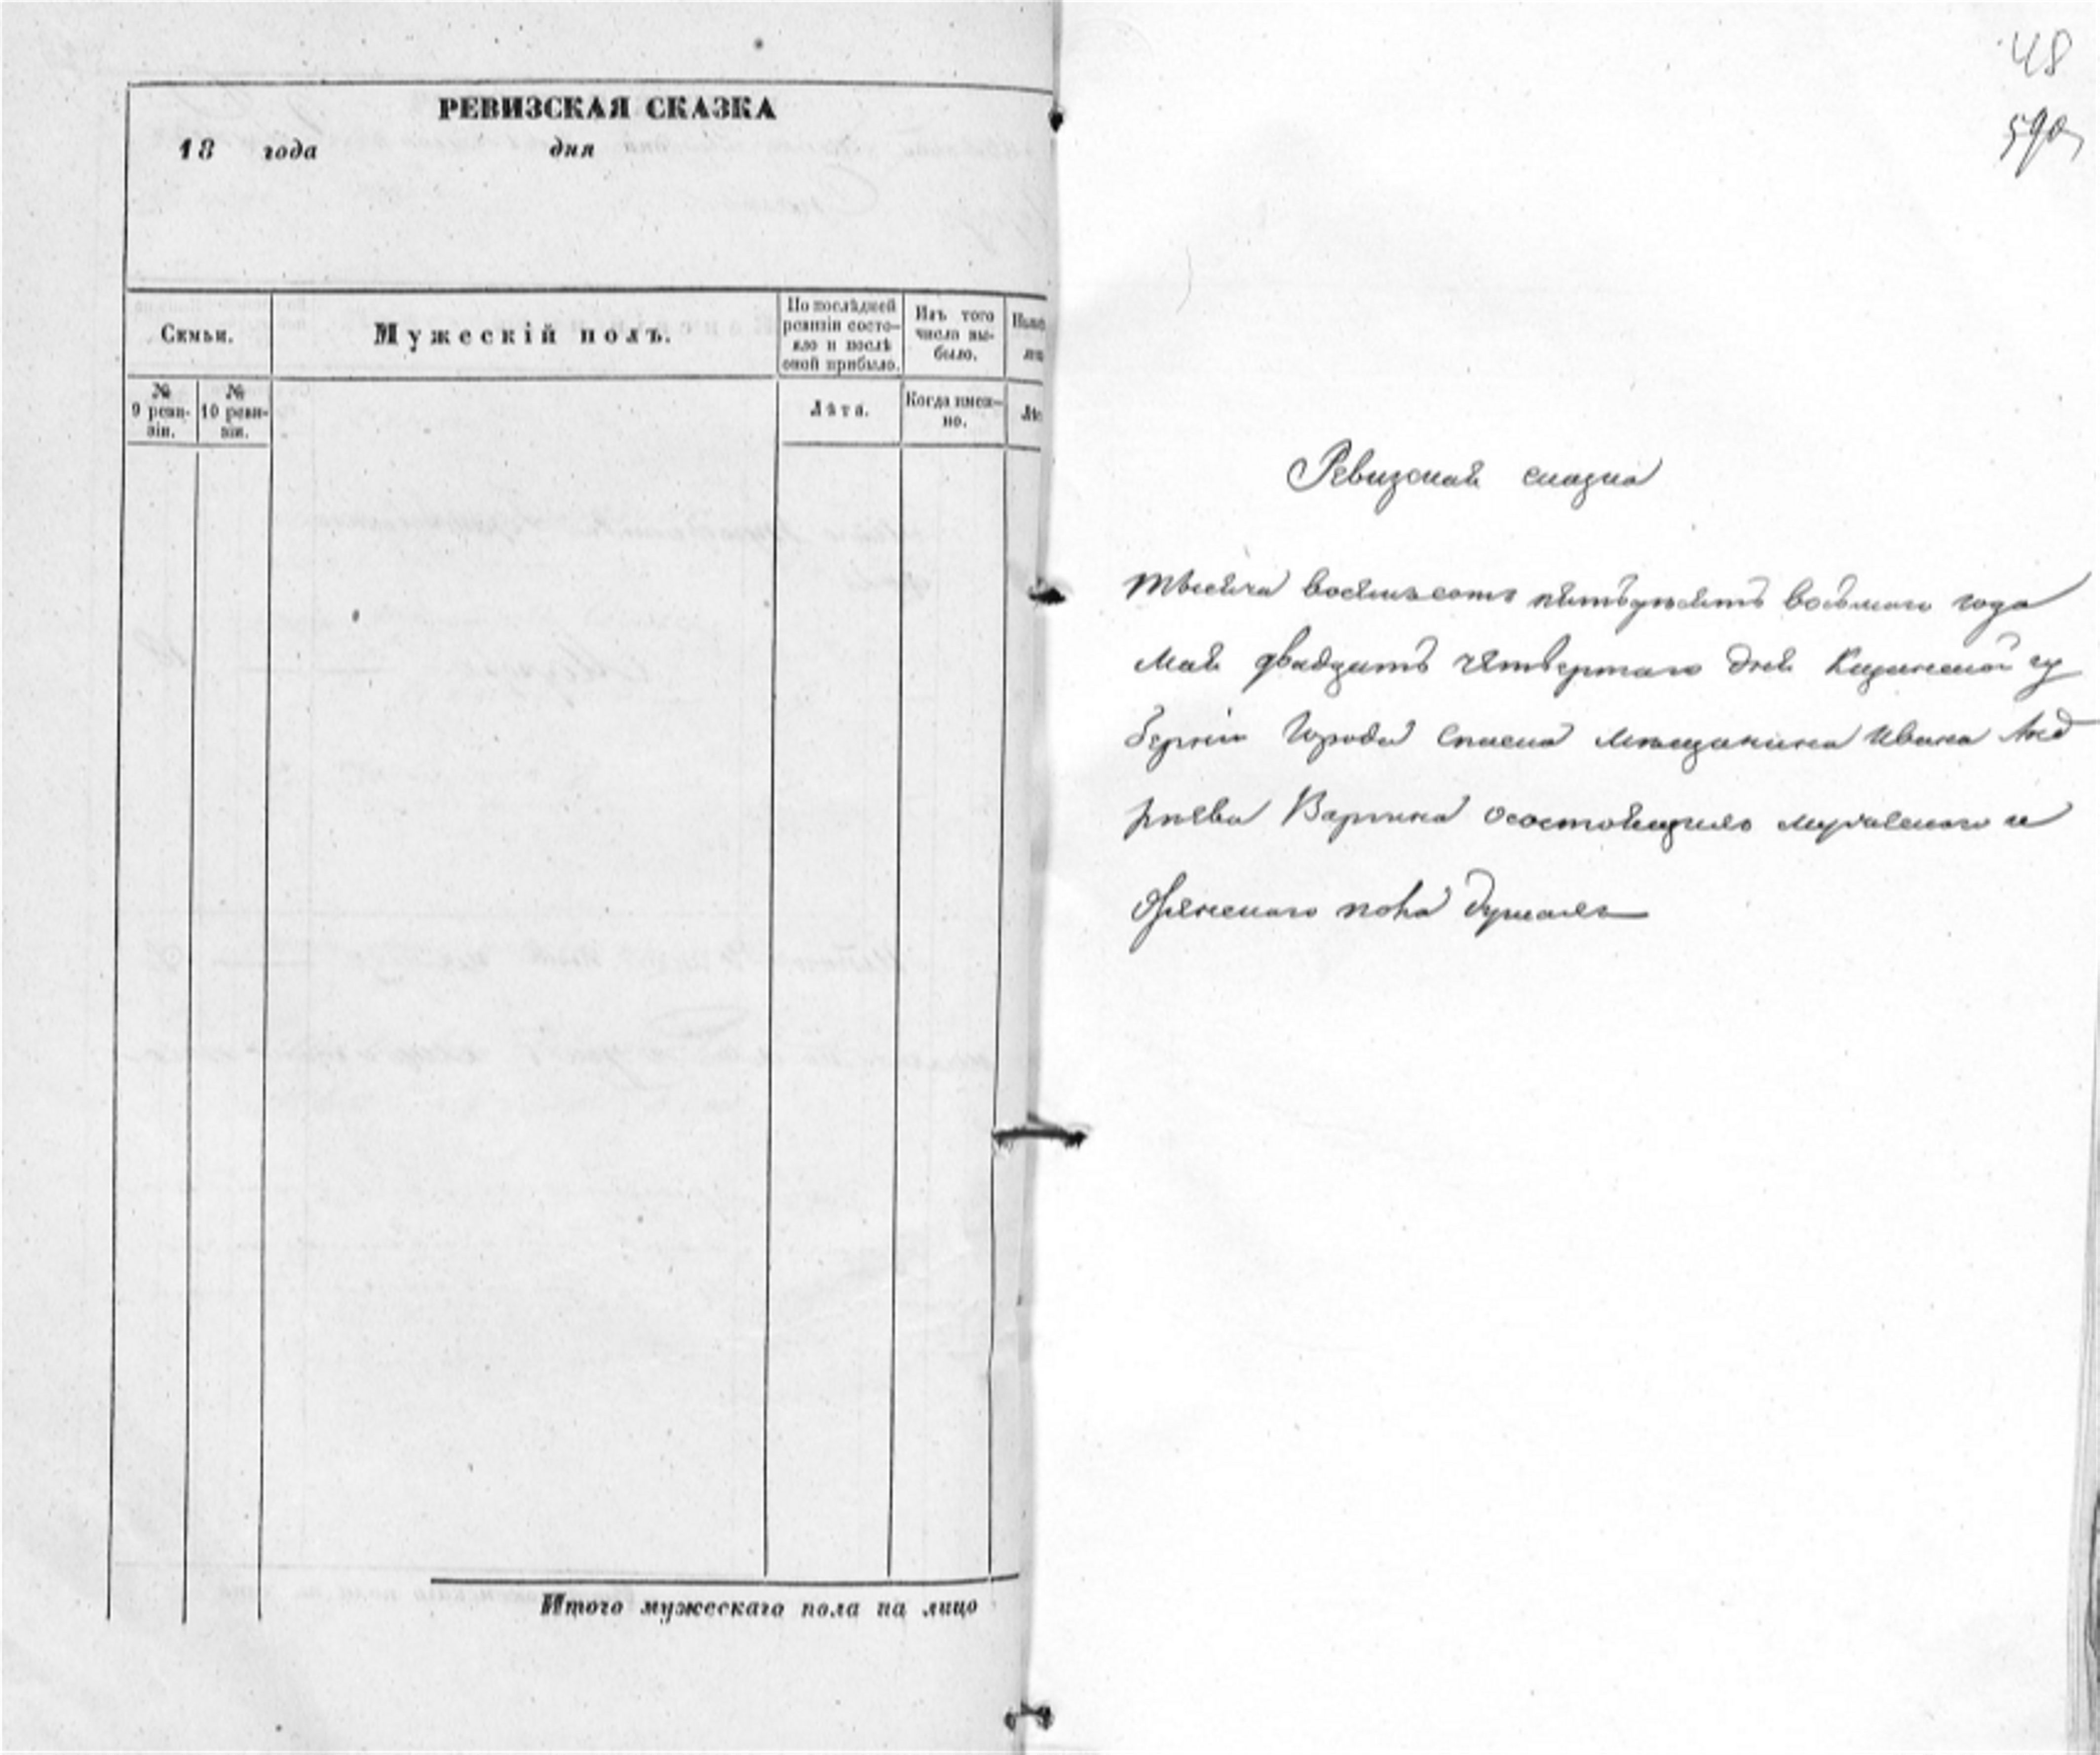 РЕВИЗСКАЯ СКАЗКА
18 года дня
Семьи.
Мужескій полъ.
По послѣдней
ревизіи состо-
яло и послѣ
оной прибыло.
Изъ того
числа вы-
было.
№
9 реви-
зіи.
№
10 реви-
зіи.
Лѣта.
Когда имен-
но.
Итого мужескаго пола на лицо
48
590
Ревизская сказка
тысяча восемьсотъ пятьдесятъ восьмаго года
Мая двадцать четвертаго дня Казанской гу
берніи Города Спаска мѣщанина Ивана Анд
рѣева Варгина осостоящихъ мужескаго и
женскаго пола душахъ